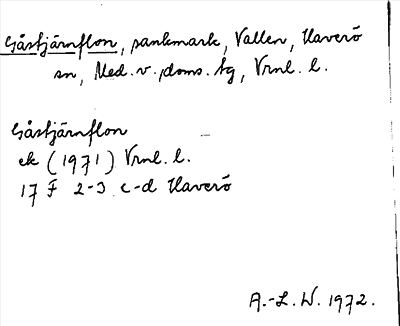 Gåstjärnflon, sankmark, Vallen, Haverö
sn, Med. v. doms. tg, Vrnl. l.
Gåstjärnflon
ek (1971) Vrnl. l.
17 F 2-3 c-d Haverö
A.-L. W. 1972.